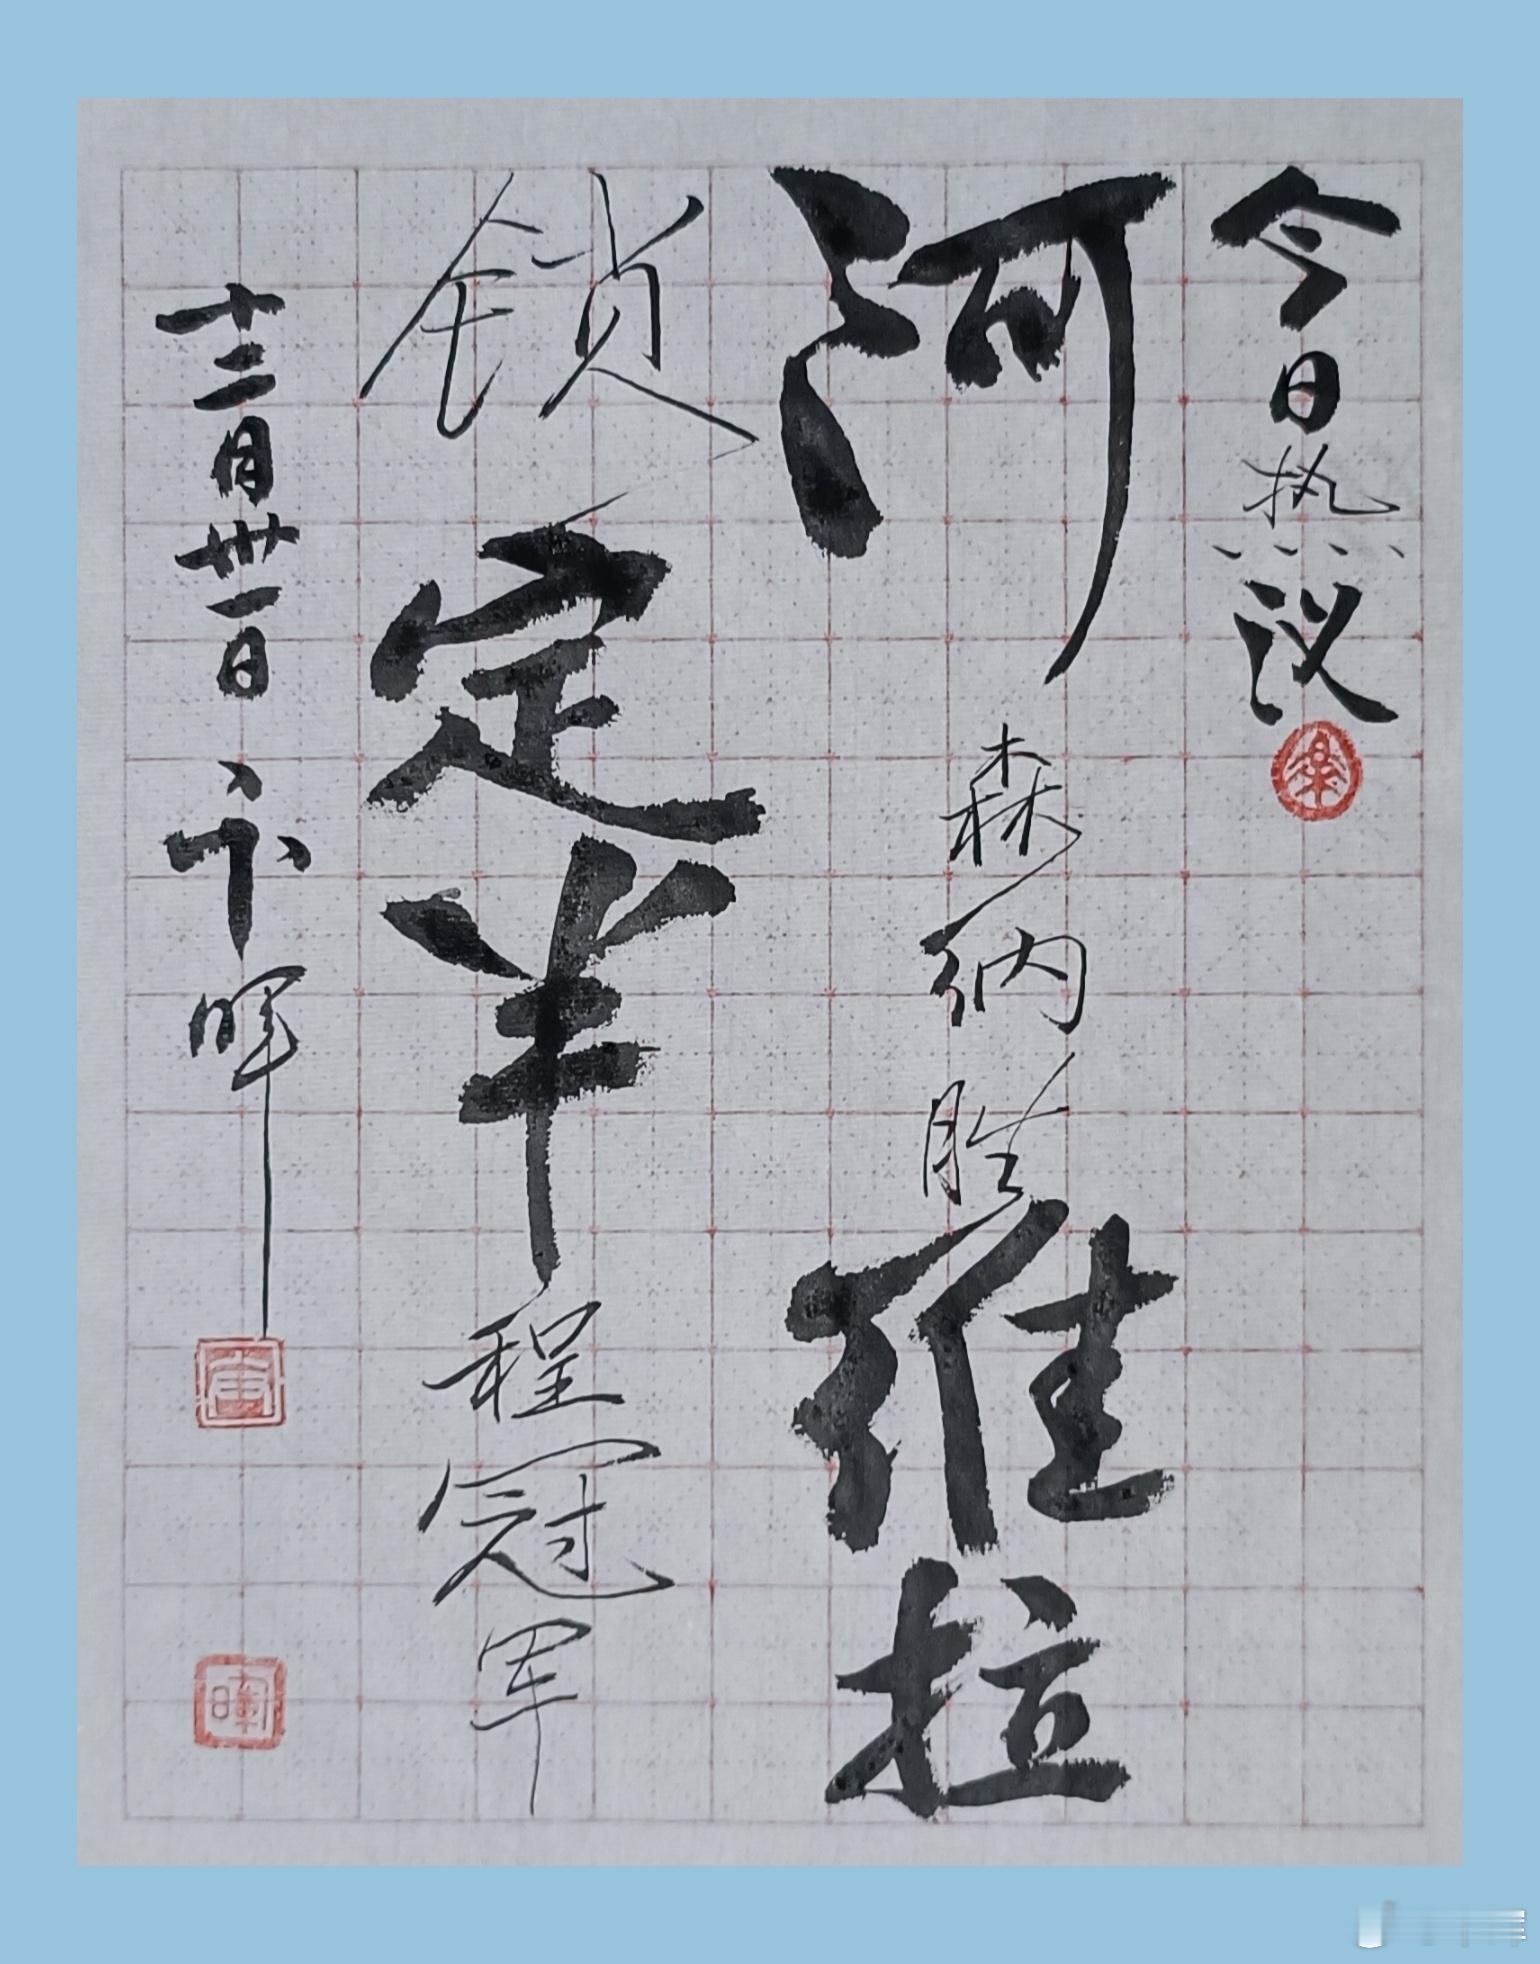 今日热议
阿森纳胜维拉
锁定半程冠军
十二月卅一日卞晖
暉